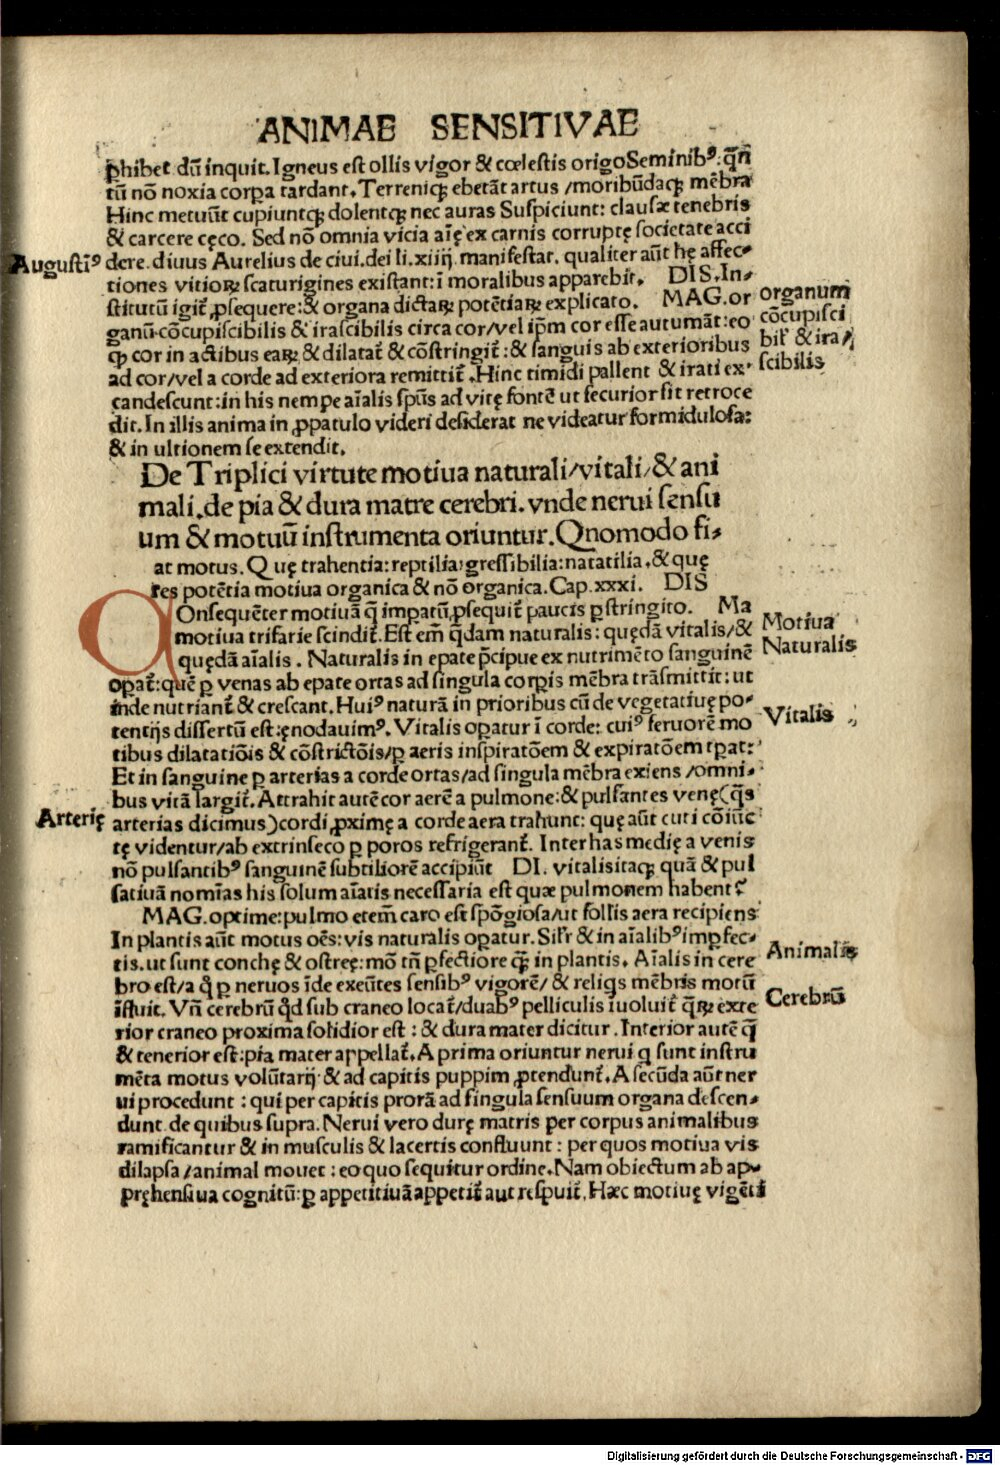 ANIMAE SENSITIVAE
ꝓhibet dū inquit. Igneus est ollis vigor & cœlestis origo Seminibꝰ: q̄n
tū nō noxia corꝑa tardant. Terreniqꝫ ebetāt artus / moribūdaqꝫ mēbra
Hinc metuūt cupiuntqꝫ dolentqꝫ nec auras Suspiciunt: clausæ tenebris
& carcere cęco. Sed nō omnia vicia aīę ex carnis corruptę societate acci
Augustinꝰ
dere. diuus Aurelius de ciui. dei li. xiiij. manifestat. qualiter aūt hę affec⸗
tiones vitioꝝ scaturigines existant: ī moralibus apparebit. DIS. In⸗
stitutū igit̄ ꝓsequere: & organa dictaꝝ potētiaꝝ explicato. MAG. or
organum
ganū cōcupiscibilis & irascibilis circa cor / vel ip̄m cor esse autumāt: eo
cōcupisci
qꝫ cor in actibus eaꝝ & dilatat̄ & cōstringit̄: & sanguis ab exterioribus
bil' & ira/
ad cor / vel a corde ad exteriora remittit̄. Hinc timidi pallent & irati ex⸗
scibilis
candescunt: in his nempe aīalis sp̄us ad vitę fontē ut securior sit retroce
dit. In illis anima in ꝓpatulo videri desiderat ne videatur formidulosa:
& in ultionem se extendit.
De Triplici virtute motiua naturali / vitali / & ani
mali. de pia & dura matre cerebri. vnde nerui sensu
um & motuū instrumenta oriuntur. Qnomodo fi⸗
at motus. Quę trahentia: reptilia: gressibilia: natatilia. & quę
res potētia motiua organica & nō organica. Cap. xxxi. DIS
COnsequēter motiuā q̄ imꝑatū ꝓsequit̄ paucis ꝑstringito. Ma
Motiua
motiua trifarie scindit̄. Est em̄ q̄dam naturalis: quędā vitalis / &
Naturalis
quędā aīalis. Naturalis in epate p̄cipue ex nutrimēto sanguinē
oꝑat̄: quē ꝑ venas ab epate ortas ad singula corꝑis mēbra trāsmittit: ut
inde nutriant̄ & crescant. Huiꝰ naturā in prioribus cū de vegetatiuę po⸗
Vitalis
tentijs dissertū est: ęnodauimꝰ. Vitalis oꝑatur ī corde: cuiꝰ feruorē mo
tibus dilatatiōis & cōstrictōis / ꝑ aeris inspiratōem & expiratōem tꝑat:
Et in sanguine ꝑ arterias a corde ortas / ad singula mēbra exiens / omni⸗
bus vitā largit̄. Attrahit autē cor aerē a pulmone: & pulsantes venę (q̄s
Arterię
arterias dicimus) cordi ꝓximę a corde aera trahunt: quę aūt cuti cōiūc
tę videntur / ab extrinseco ꝑ poros refrigerant̄. Inter has medię a venis
nō pulsantibꝰ sanguinē subtiliorē accipiūt DI. vitalis itaqꝫ quā & pul
satiuā nomīas his solum aīatis necessaria est quæ pulmonem habent?
MAG. optime: pulmo etem̄ caro est spōgiosa / ut follis aera recipiens:
In plantis aūt motus oēs: vis naturalis oꝑatur. Sil'r & in aīalibꝰ imꝑfec⸗
Animalis
tis. ut sunt conchę & ostreę: mō tn̄ ꝑfectiore qꝫ̄ in plantis. Aīalis in cere
bro est / a q̄ ꝑ neruos īde exeūtes sensibꝰ vigorē / & reliqs mēbris motū
Cerebrū
īstruit. Vn̄ cerebrū qd̄ sub craneo locat̄ / duabꝰ pelliculis īuoluit̄ q̄ꝝ exte
rior craneo proxima solidior est: & dura mater dicitur. Interior autē q̄
& tenerior est: pia mater appellat̄. A prima oriuntur nerui q sunt instru
mēta motus volūtarij & ad capitis puppim ꝓtendunt̄. A secūda aūt ner
ui procedunt: qui per capitis prorā ad singula sensuum organa descen⸗
dunt de quibus supra. Nerui vero durę matris per corpus animalibus
ramificantur & in musculis & lacertis confluunt: per quos motiua vis
dilapsa / animal mouet: eo quo sequitur ordine. Nam obiectum ab ap⸗
pręhensiua cognitū: ꝑ appetitiuā appetit̄ aut respuit̄. Hæc motiuę vigēti
Digitalisierung gefördert durch die Deutsche Forschungsgemeinschaft - DFG